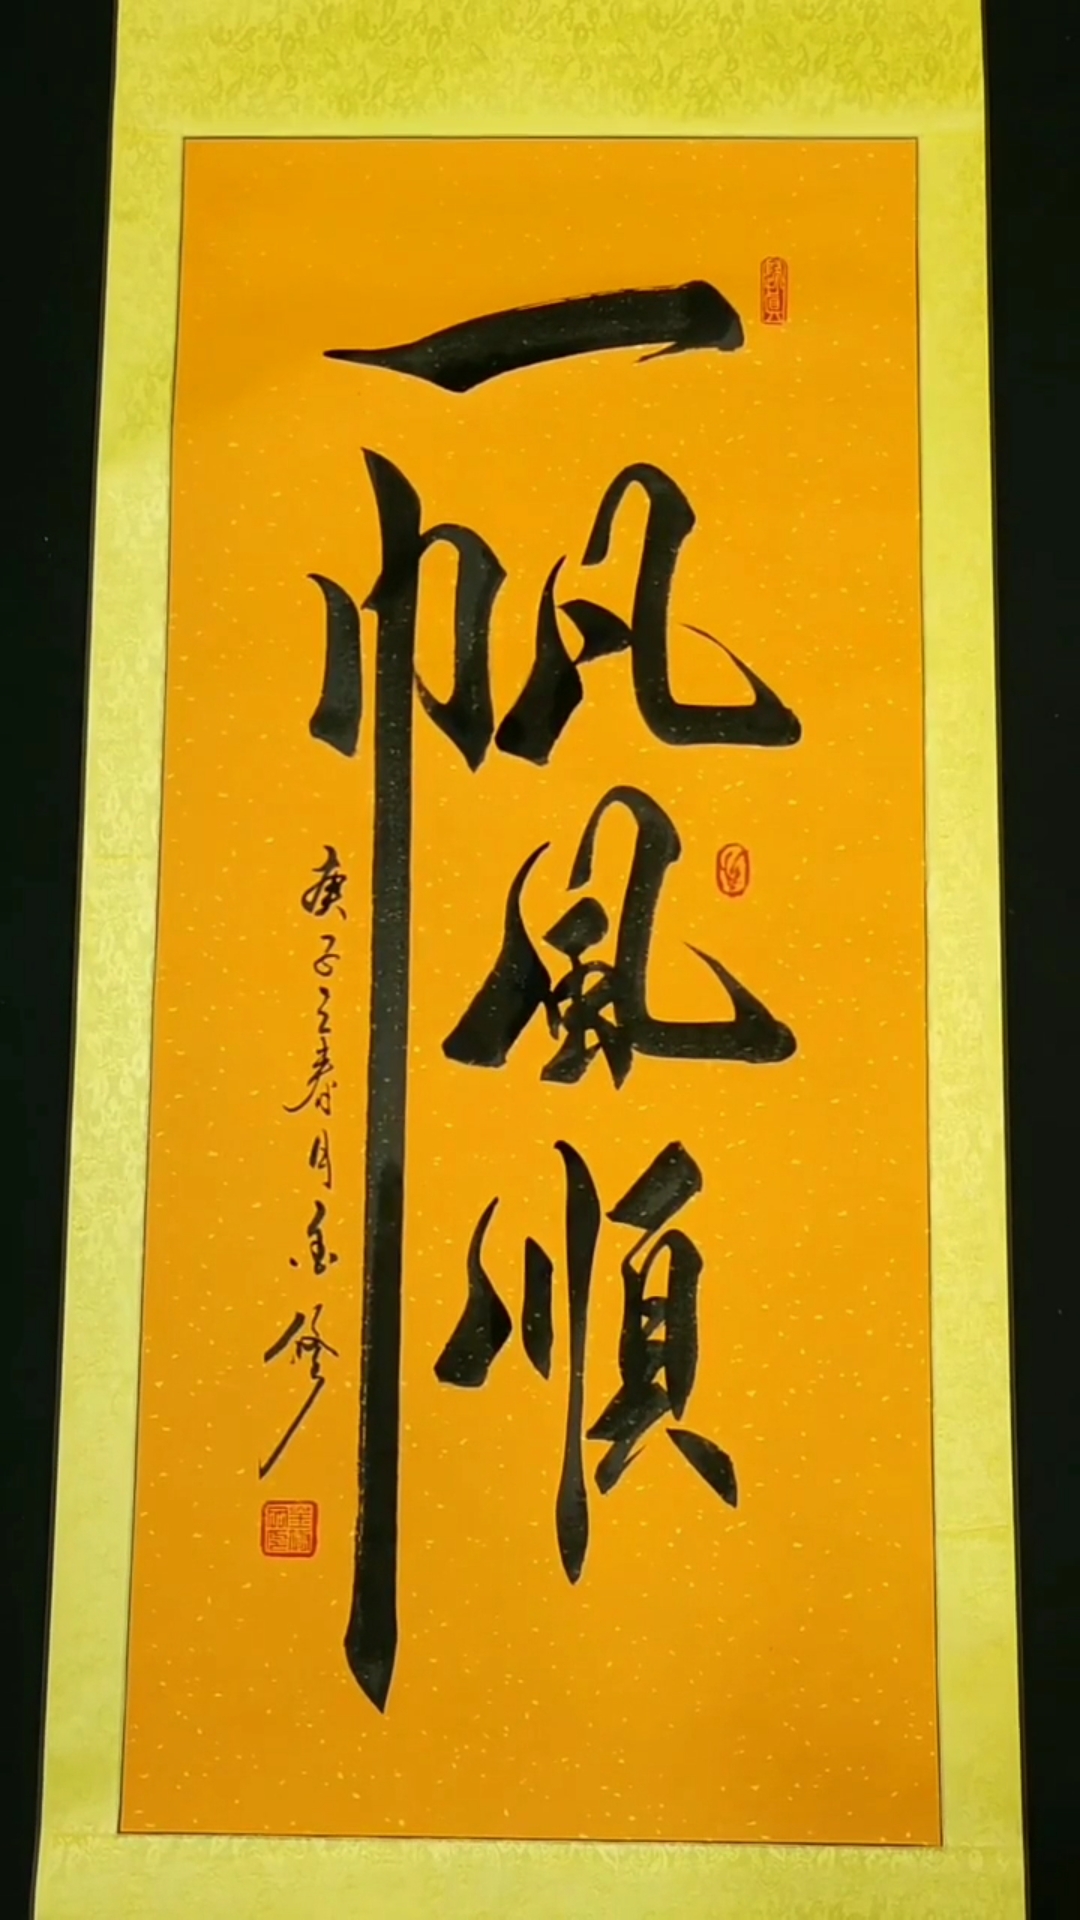 一帆風順
庚子之春月金修